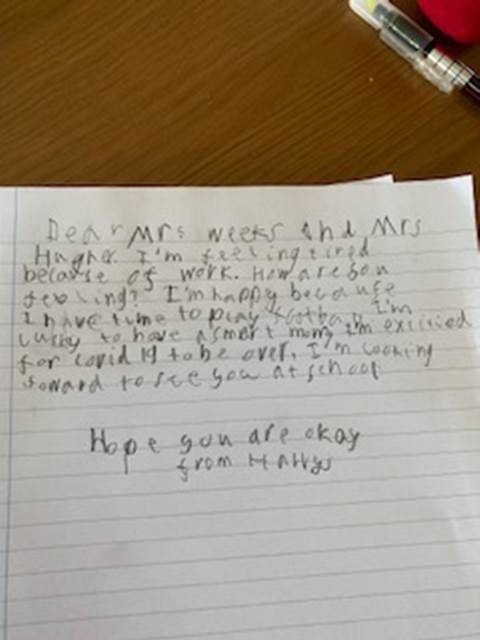 Dear Mrs weeks and Mrs
Hughe I'm feeling tired
because of work. How are you
feeling? I'm happy because
I have time to play I'm
Lucky to have a smart mom, I'm
for covid 19 to be over, I'm Looking
foward to see you at school
Hope you are okay
from Harrys